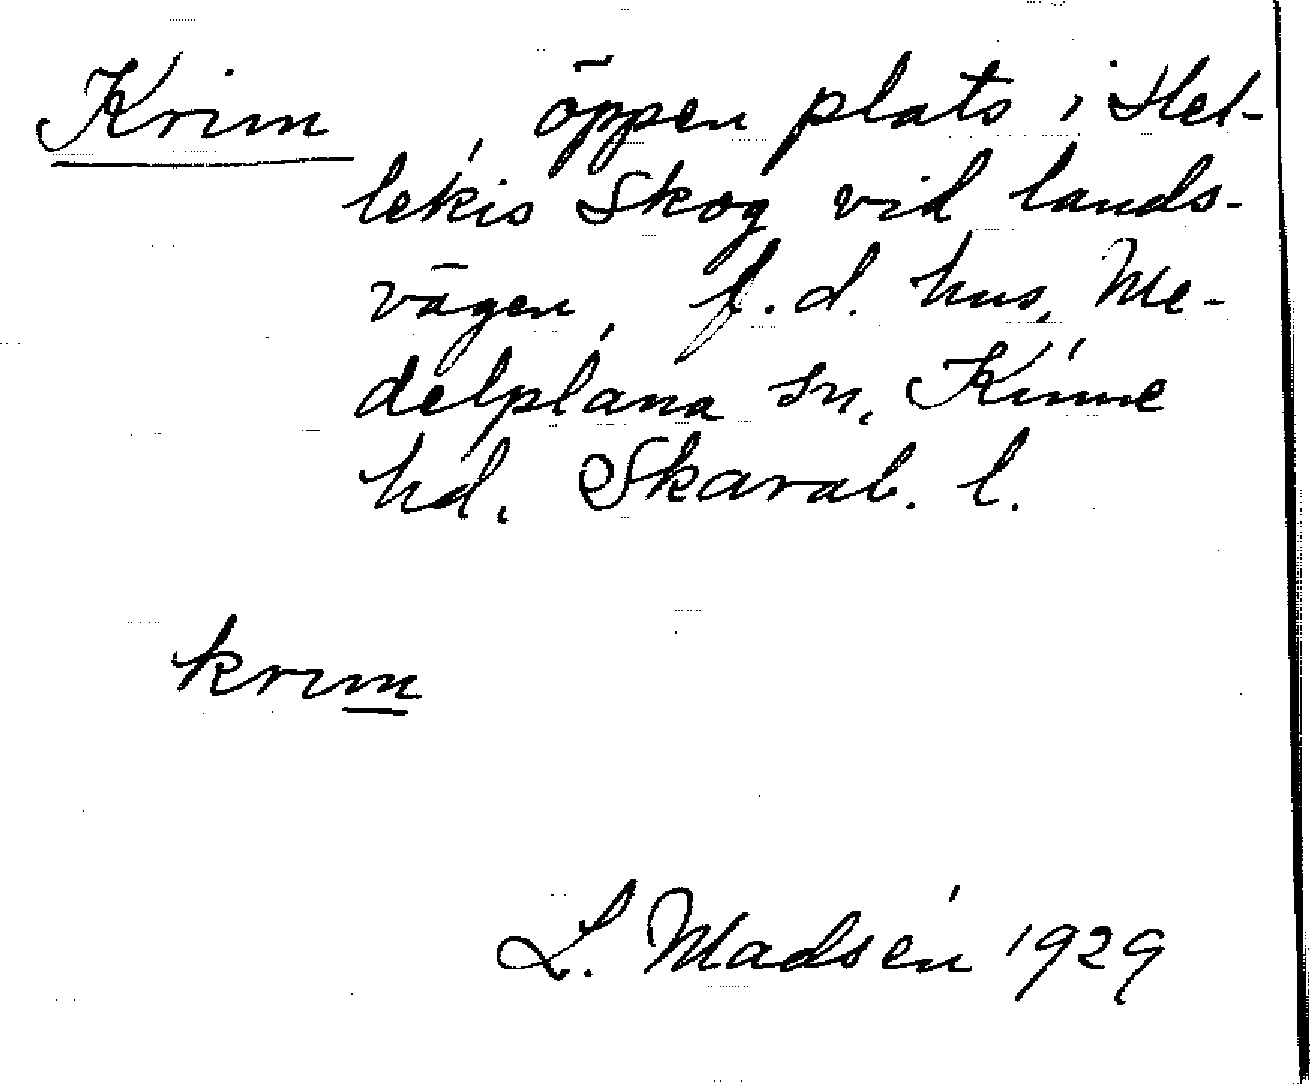 Krim, öppen plats i Hel-
lekis Skog vid lands-
vägen, f.d. hus, Me-
delplana sn, Kinne
hd. Skarab. l.
krim
L. Madsén 1929